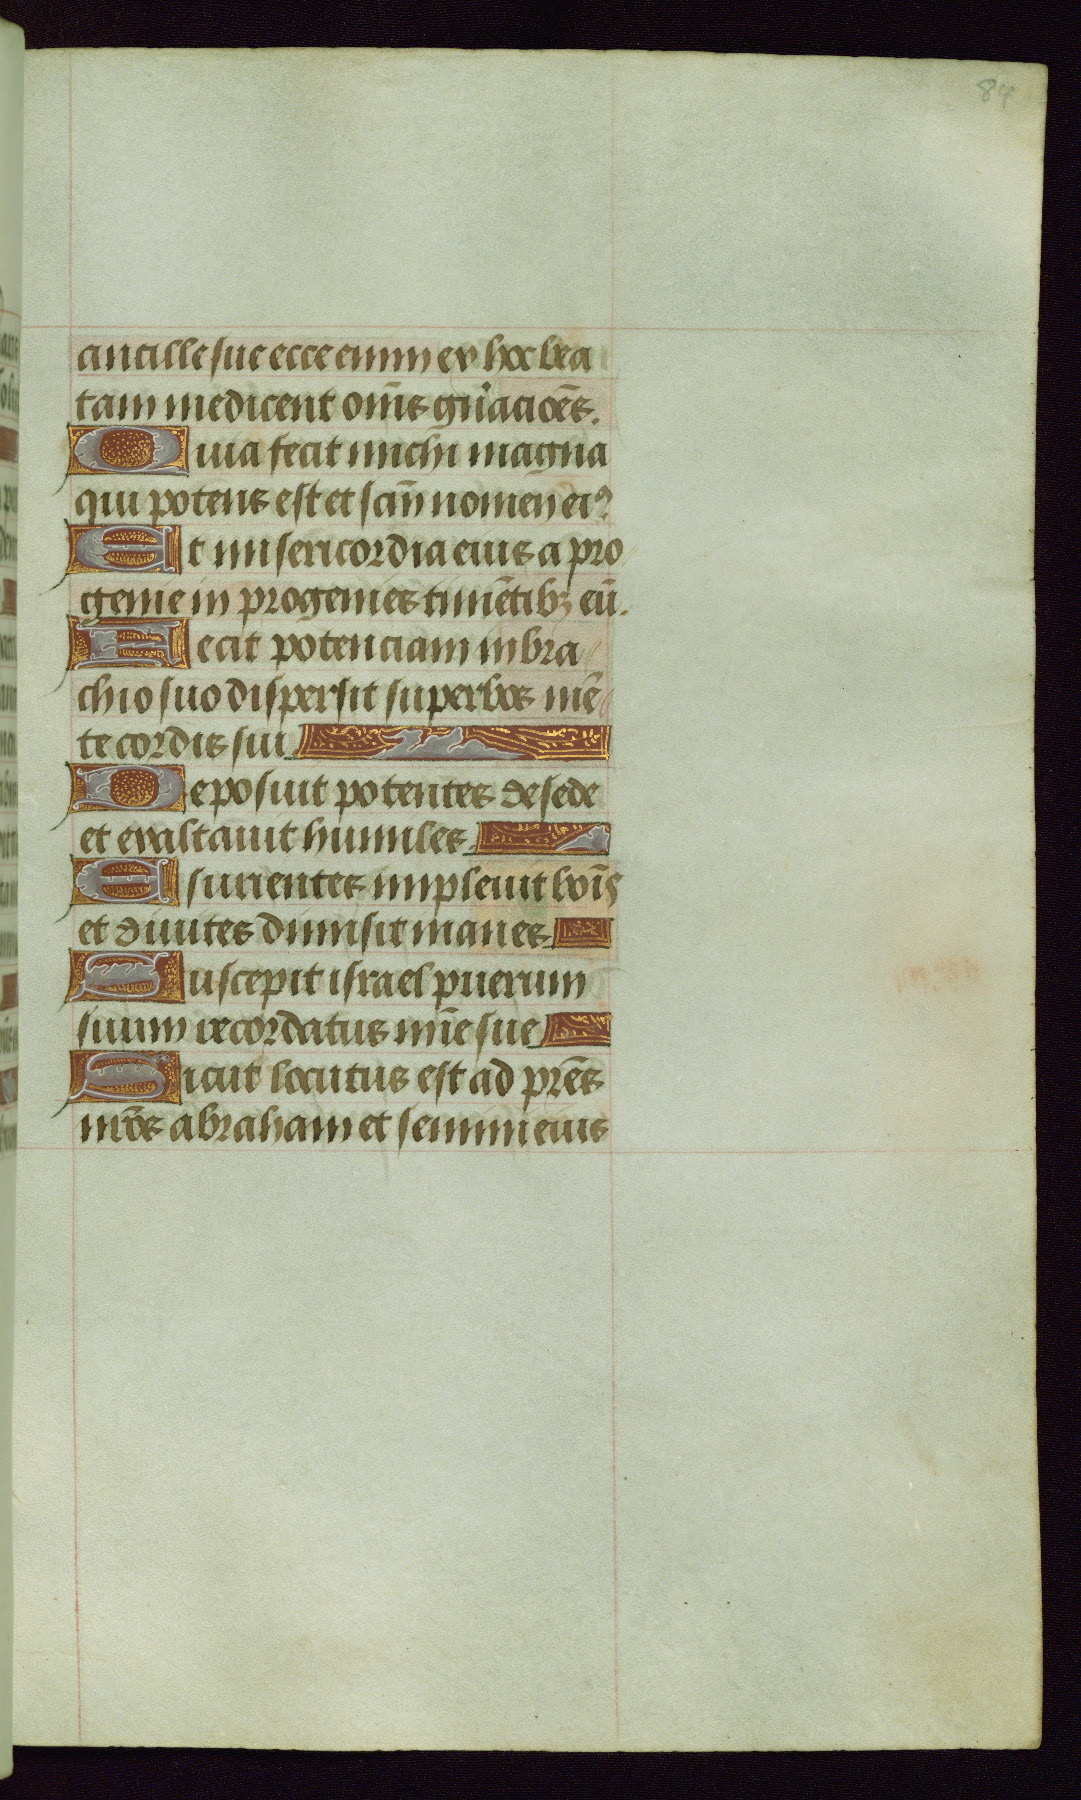 84
ancille sue ecce enim ex hoc bea
tam me dicent om̄s gn̄acio͞es.
Quia fecit michi magna
qui potens est et sc̄m nomen ei⁹
Et misericordia eius a pro
genie in progenies timētibꝫ eū.
Fecit potenciam in bra
chio suo dispersit superbos mē
te cordis sui.
Deposuit potentes de sede
et exaltavit humiles.
Esurientes implevit boīs
et divites dimisit inanes.
Suscepit israel puerum
suum recordatus mīe sue
Sicut locutus est ad pr̄es
nr̄os abraham et semini eius